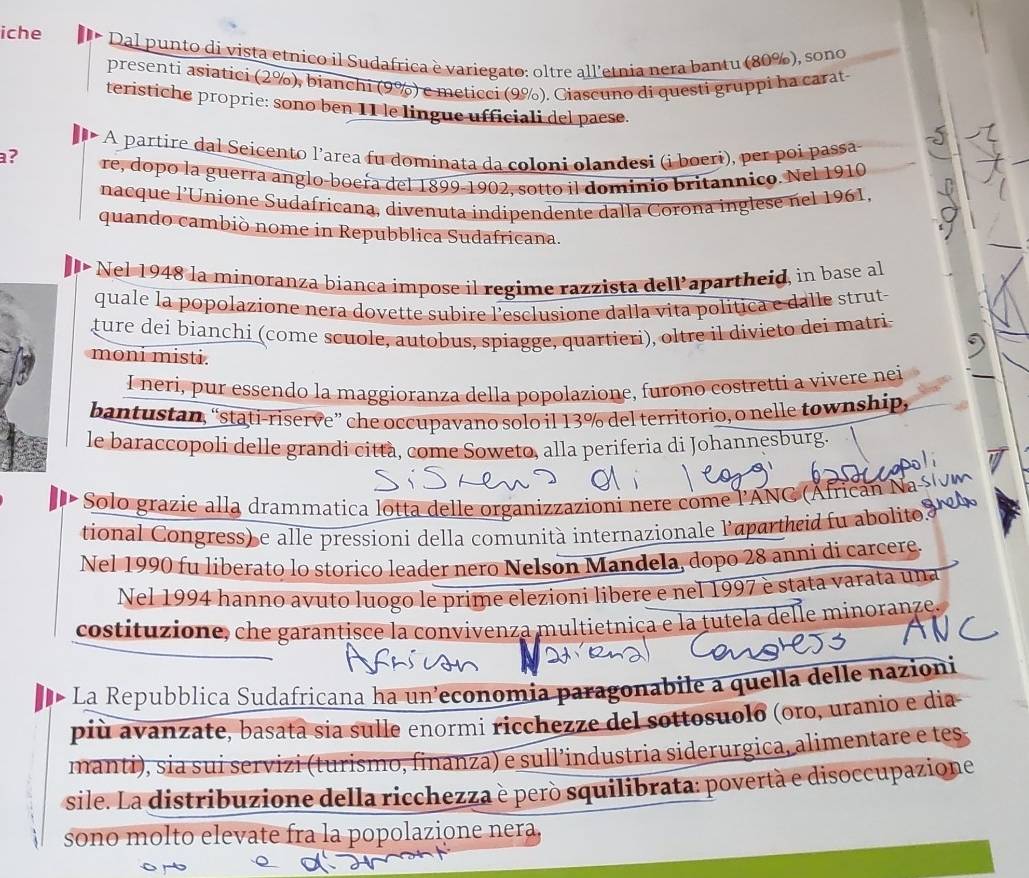 iche
Dal punto di vista etnico il Sudafrica è variegato: oltre all'etnia nera bantu (80%), sono
presenti asiatici (2%), bianchi (9%) e meticci (9%). Ciascuno di questi gruppi ha carat-
teristiche proprie: sono ben 11 le lingue ufficiali del paese.
a?
A partire dal Seicento l'area fu dominata da coloni olandesi (i boeri), per poi passa-
re, dopo la guerra anglo-boera del 1899-1902, sotto il dominio britannico. Nel 1910
nacque l'Unione Sudafricana, divenuta indipendente dalla Corona inglese nel 1961,
quando cambiò nome in Repubblica Sudafricana.
Nel 1948 la minoranza bianca impose il regime razzista dell'apartheid, in base al
quale la popolazione nera dovette subire l'esclusione dalla vita politica e dalle strut-
ture dei bianchi (come scuole, autobus, spiagge, quartieri), oltre il divieto dei matri-
moni misti.
I neri, pur essendo la maggioranza della popolazione, furono costretti a vivere nei
bantustan, “stati-riserve” che occupavano solo il 13% del territorio, o nelle township,
le baraccopoli delle grandi città, come Soweto, alla periferia di Johannesburg.
Sistema di leggi baraccopoli
slum
Solo grazie alla drammatica lotta delle organizzazioni nere come l'ANC (African Na-
tional Congress) e alle pressioni della comunità internazionale l'apartheid fu abolito.
Nel 1990 fu liberato lo storico leader nero Nelson Mandela, dopo 28 anni di carcere.
Nel 1994 hanno avuto luogo le prime elezioni libere e nel 1997 è stata varata una
costituzione, che garantisce la convivenza multietnica e la tutela delle minoranze.
African National Congress ANC
La Repubblica Sudafricana ha un'economia paragonabile a quella delle nazioni
più avanzate, basata sia sulle enormi ricchezze del sottosuolo (oro, uranio e dia-
manti), sia sui servizi (turismo, finanza) e sull'industria siderurgica, alimentare e tes-
sile. La distribuzione della ricchezza è però squilibrata: povertà e disoccupazione
sono molto elevate fra la popolazione nera.
oro e diamanti